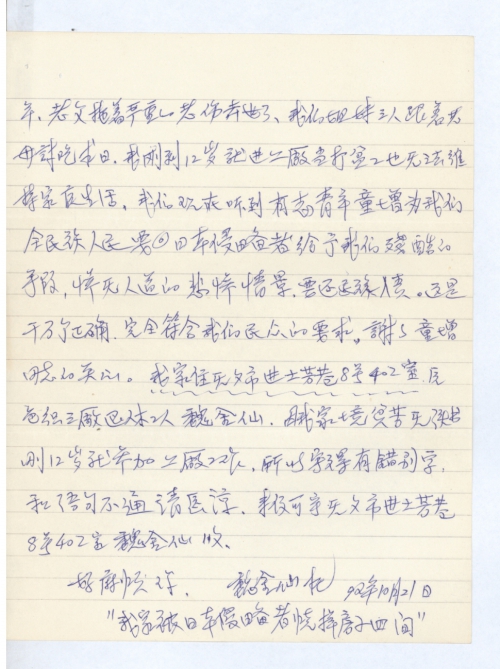 年，老父拖着严重的老伤奔世了，我们姐妹三人跟着老
母讨吃本日。我刚到12岁就进工厂当打童工也无法维
持家庭生活，我们现在听到有志青年童增为我们
全民族人民要回日本侵略者给予我们残酷的
手段，惨无人道的悲惨情景，要还民族债。这是
千万个正确，完全符合我们民众的要求。謝谢童增
同志的关心。我家住无夕市世士芳巷8号402室，
色织三厂退休工人魏金仙。因我家境贫苦无
刚12岁就参加工厂工作，所以字里有错别字，
和语句不通请医谅。来信可寄无夕市世士芳巷
8号402室魏金仙收。
魏金仙 92年10月21日
"我家被日本侵略者烧掉房子四间"